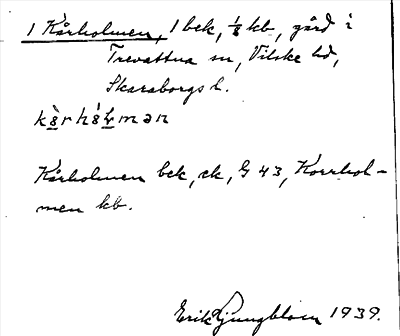 1 Kårholmen, 1 bek, 1/8 kb, gård i
Trevattna sn, Vilske hd,
Skaraborgs l.
Kårholmen bek, ck, G 43, Korrhol-
men kb.
Erik Ljungblom 1939.